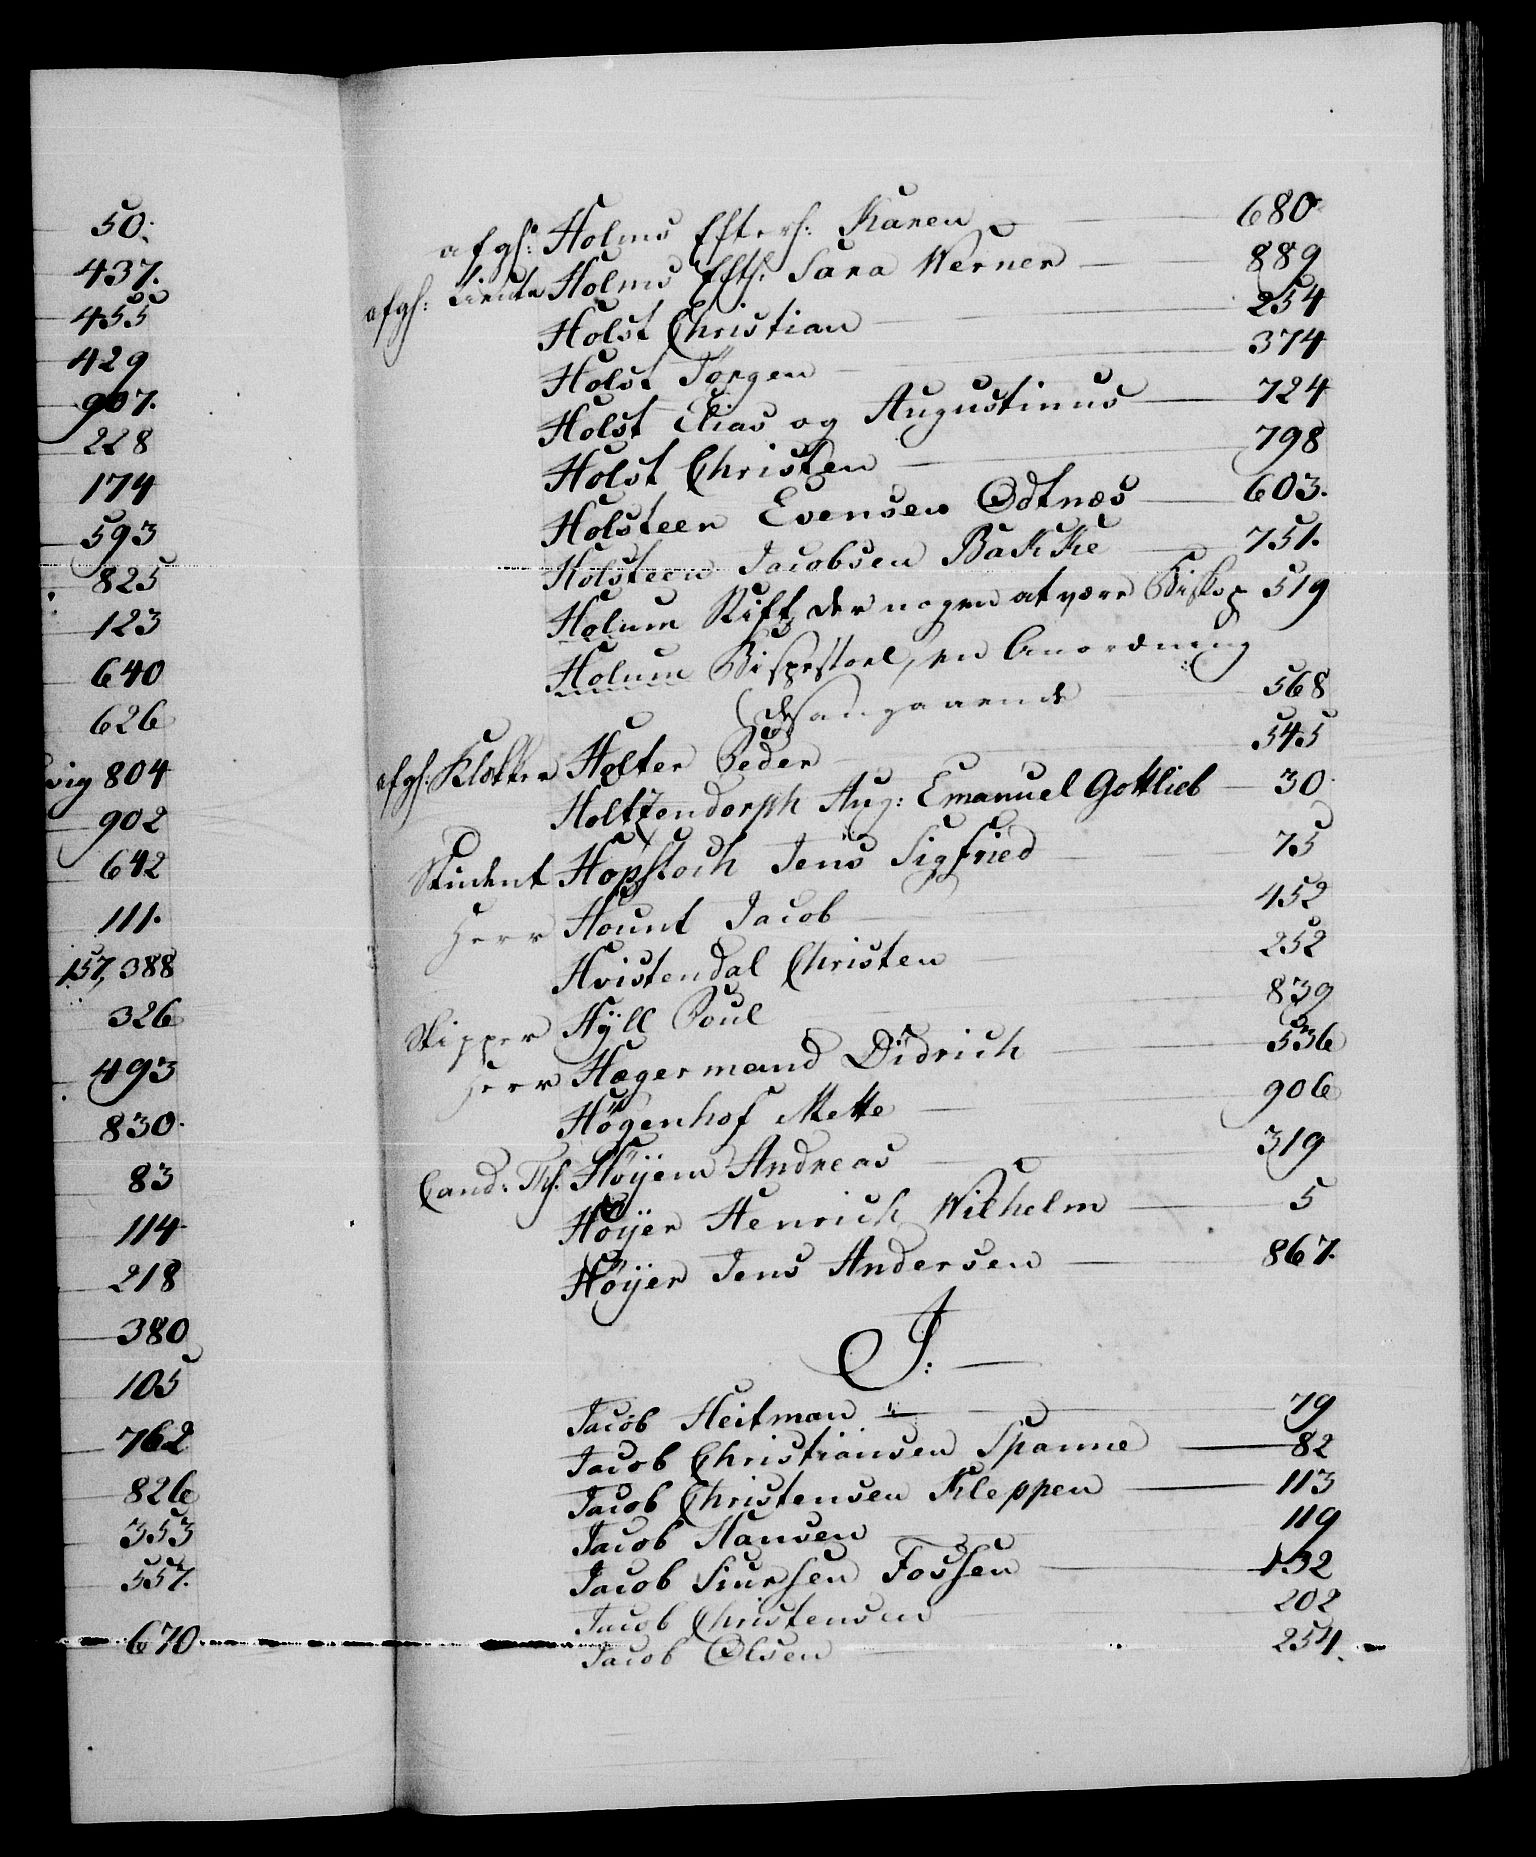 50.
437.
455
429
907.
228
174
593
825
123
640
626
vig 804
902
642
111.
157, 388
326
493
830.
83
114
218
380
105
762
826
353
557.
670
afgh: Holms Efterh: Karen 680
afgh: Lieutn Holms Efth: Sara Werner 889
Holst Christian 254
Holst Jörgen 374
Holst Elias og Augustinus 724
Holst Christen 798
Holsteen Evensen Odtnæs 603.
Holsteen Jacobsen Bakke 751.
Holum Stift der nogen at være Biskop 519
Holum Bispestoel, en Anordning
desangaaende 568
afgh: Klokker Holter Peder 545
Holtzendorph Aug: Emanuel Gottlieb 30
Student Hopstock Jens Sigfried 75
Herr Hount Jacob 452
Hvistendal Christen 252
Skipper Hÿll Poul 839
Herr Hægermand Didrich 536
Högenhof Mette 906
Cand: Th. Höijem Andreas 319
Höijer Henrich Wilhelm 5
Höijer Jens Andersen 867.
J:
Jacob Heitman 79
Jacob Christiansen Spanne 82
Jacob Christensen Kleppen 113
Jacob Hansen 119
Jacob Siursen Fossen 132
Jacob Christensen 202
Jacob Olsen 254.